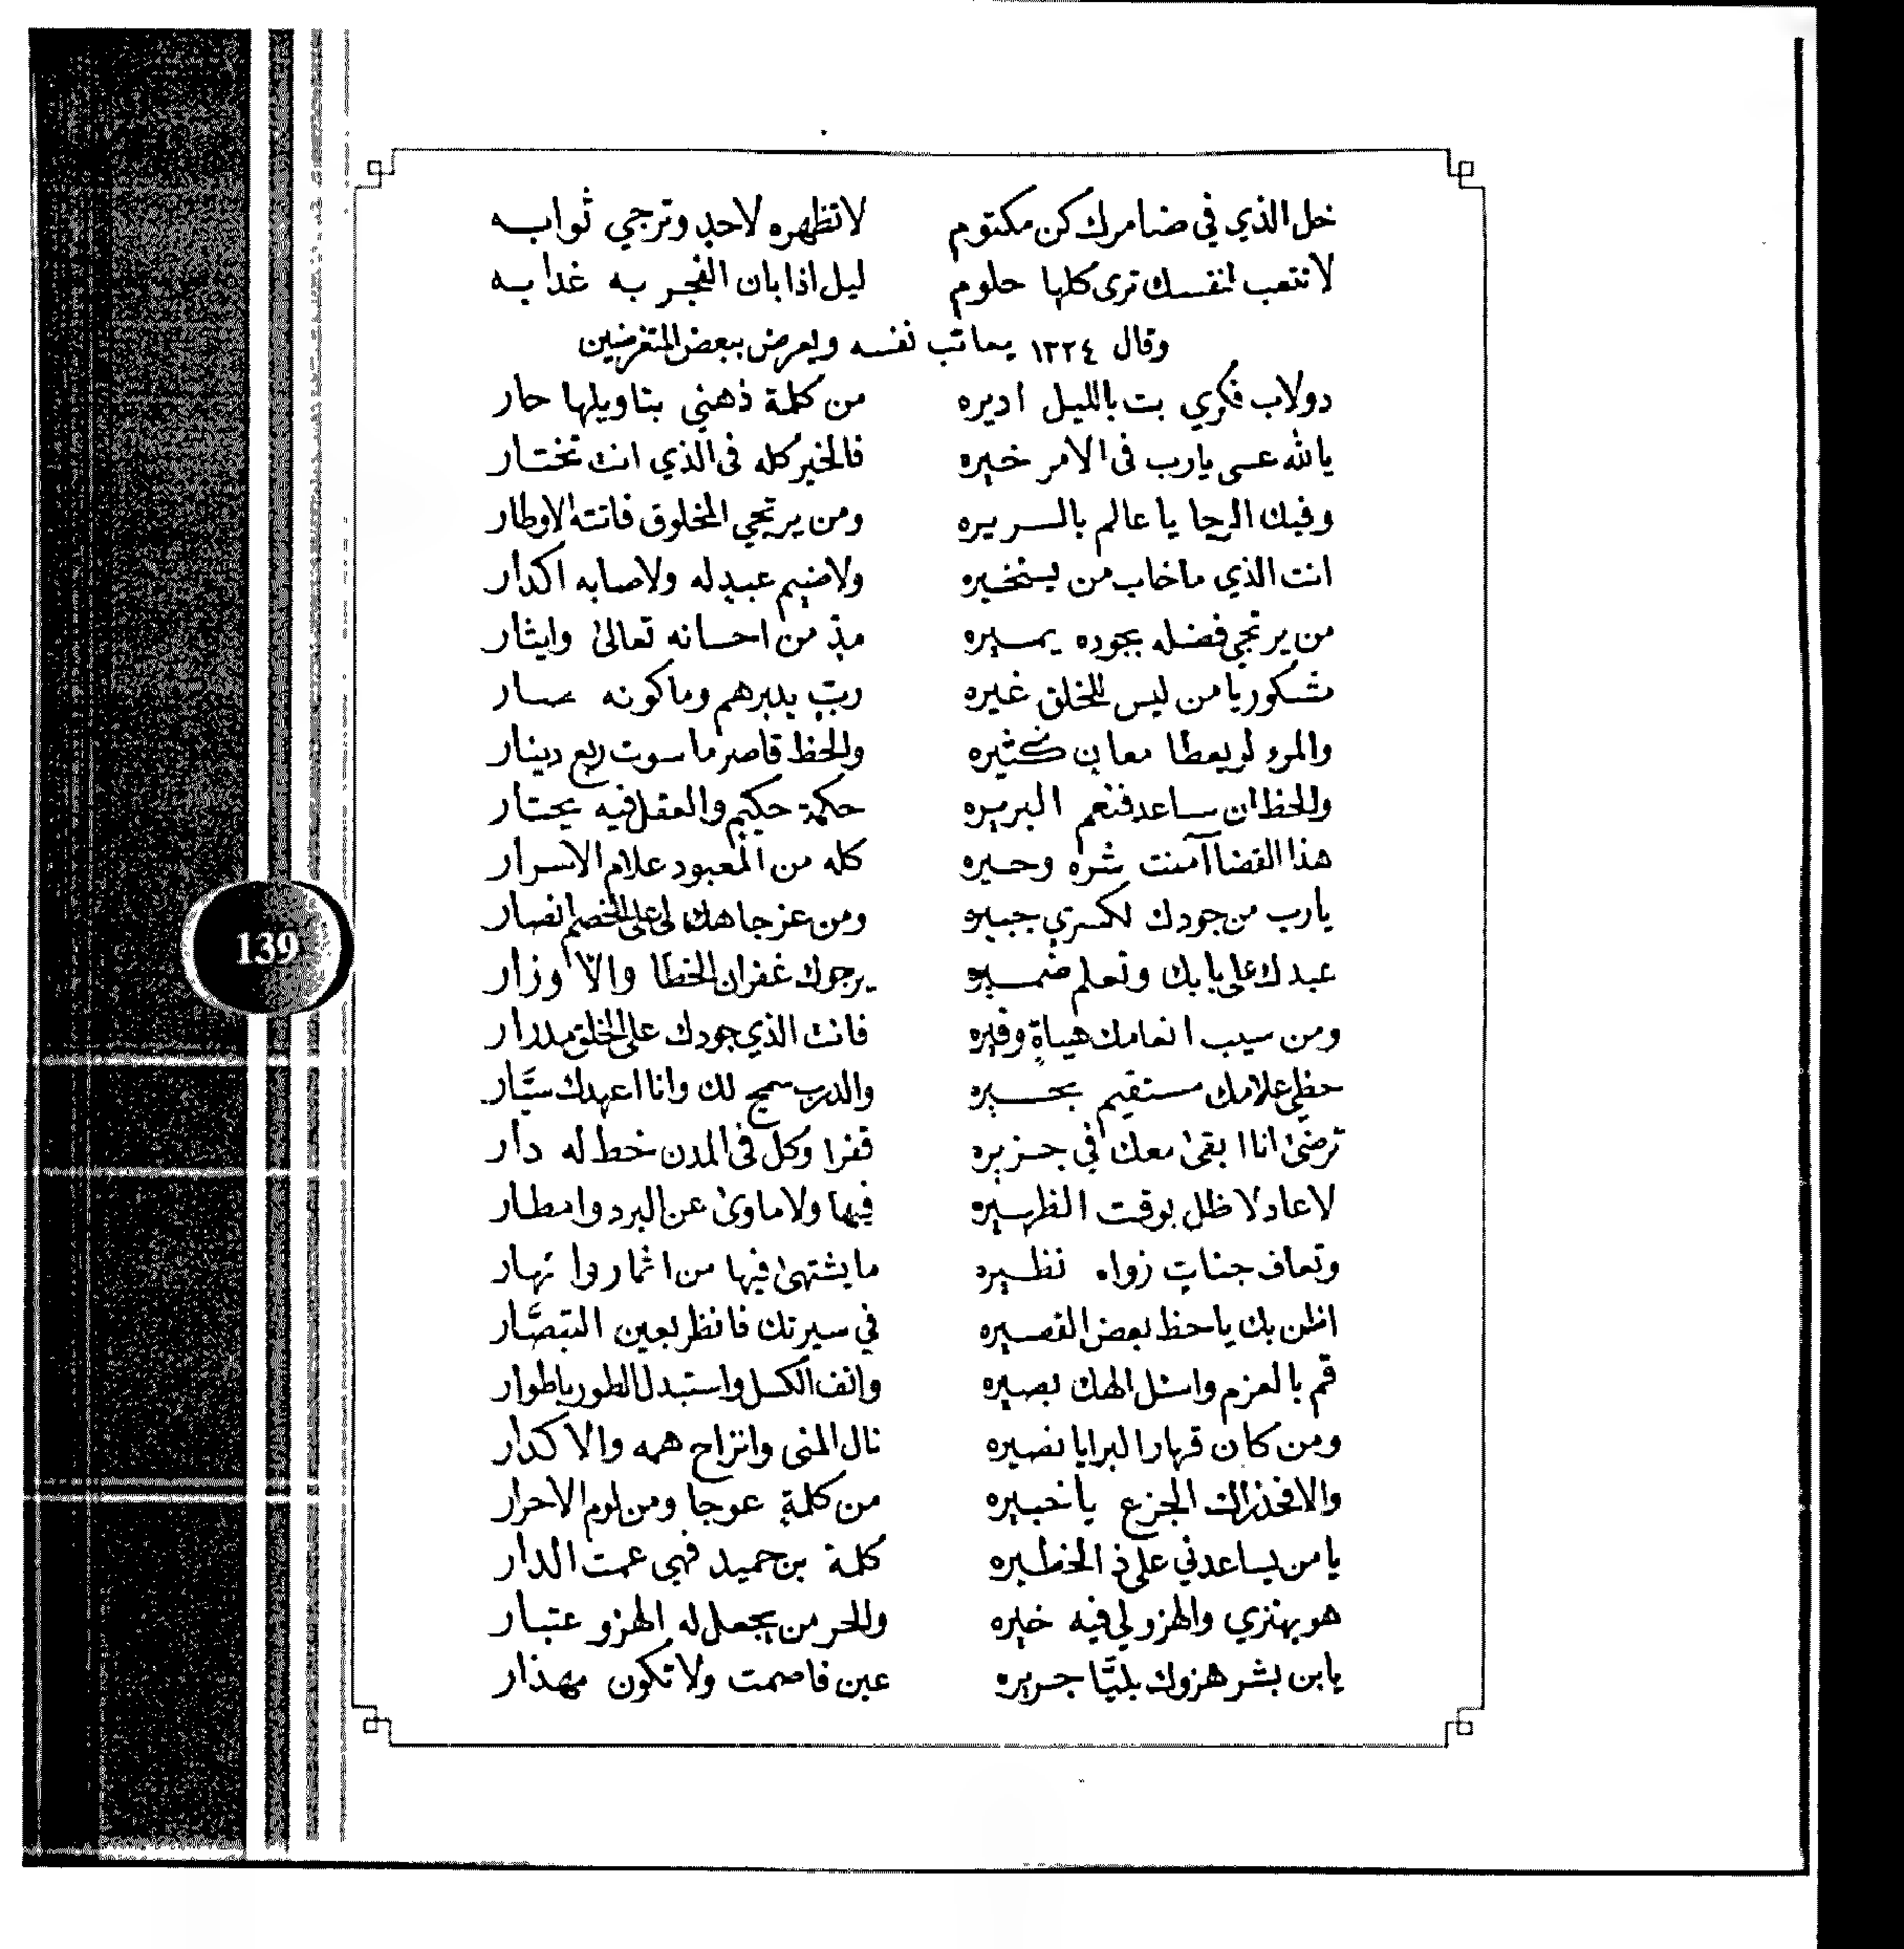 خل الذي في ضنا مرك كن مكتوم لا تظهره لاحدٍ وترجي ثوابه
لا تتعب انفسك ترى كلها حلوم ليل اذا بان الفجر به غدا به
وقال ١٢٢٤ يعاتب نفسه ويعرض ببعض المتغرضين
دولاب فكري بت بالليل اديره من كلمة ذهني بتاويلها حار
يالله عسى يارب فى الامر خيره فالخير كله فى الذي انت تختار
وفيك الرجا يا عالم بالسريره ومن يرتجي المخلوق فاتته الاوطار
انت الذي ما خاب من يستخيره ولا ضيم عبدٍ له ولا صابه اكدار
من يرتجي فضله بجوده يميره مدٍ من احسانه تعالىٰ وايثار
شكور يا من ليس للخلق غيره ربٍ يدبرهم وما كونه صار
والمرء لو يعطا معانٍ كثيره والحظ قاصر ما سوت ربع دينار
والحظ ان ساعد فنعم البريره حكمة حكيم والعقل فيه يحتار
هذا القضا آمنت شره وخيره كله من المعبود علام الاسرار
يارب من جودك لكسري جبيره ومن عز جاهك لى على الخصم انصار
عبدك على بابك وتعلم ضميره يرجوك غفران الخطا والا وزار
ومن سيب انعامك هباةٍ وفيره فانت الذي جودك على الخلق مدرار
حظي علامك مستقيم بحيره والدرب سمح لك وانا اعهدك سيَّار
ترضىٰ انا ابقىٰ معك في جزيره قفرا وكل فى المدن خط له دار
لا عاد لا ظل بوقت الظهيره فيها ولا ماوىٰ عن البرد وامطار
وتعاف جناتٍ زواه نظيره ما يشتهىٰ فيها من اثمار وانهار
اظن بك يا حظ بعض القصيره في سيرتك فانظر بعين التبصَّار
قم بالعزم واسئل الهك بصيره وانف الكسل واستبدل الطور باطوار
ومن كان قهار البرايا نصيره نال المنى وانزاح همه والاكدار
والا فخذ زاك الجزع يا خبيره من كلمةٍ عوجا ومن لوم الاحرار
يا من يساعدني على ذ الخطيره كلمة بن حميد فهي عمت الدار
هو يهتزي والهزو لي فيه خيره والحر من يجعل له الهزو عتبار
يابن بشر هزوك بليَّا جريره عين فاصمت ولا تكون مهذار
139